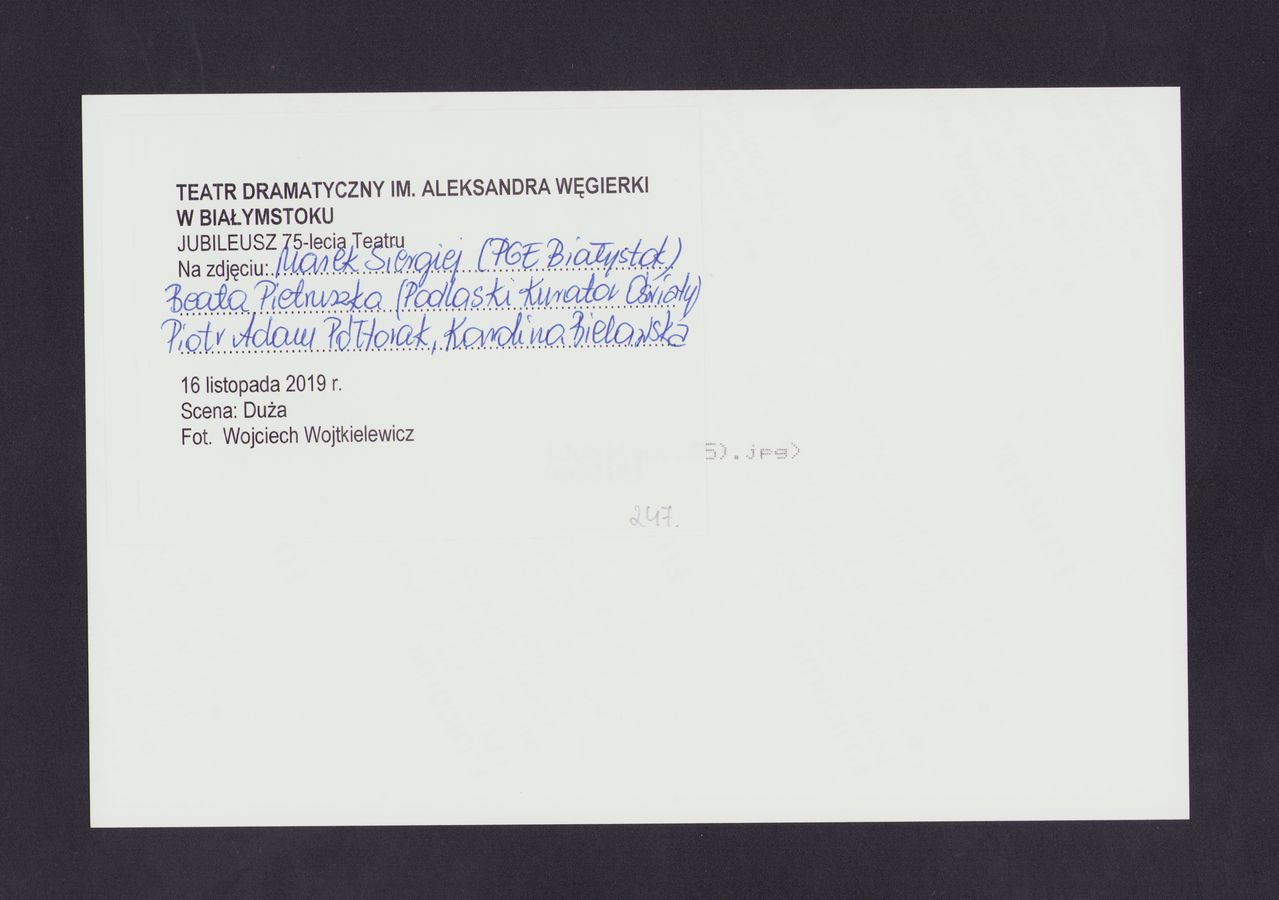 TEATR DRAMATYCZNY IM. ALEKSANDRA WĘGIERKI
W BIAŁYMSTOKU
JUBILEUSZ 75-lecia Teatru
Na zdjęciu: Marek Siergiej (PGE Białystok)
Beata Pietruszka (Podlaski Kurator Oświaty)
Piotr Adam Półtorak, Karolina Bielawska
16 listopada 2019 r.
Scena: Duża
Fot. Wojciech Wojtkielewicz
5).jpg)
247.